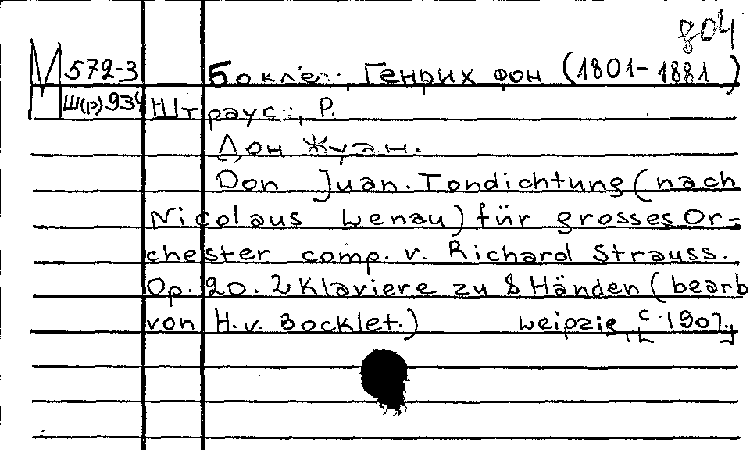 804
М 572-3 Боклет, Генрих фон (1801-1881)
Ш(р)934 Штраус, Р.
Дон Жуан.
Don Juan. Tondichtung (nach
Nicolaus Lenau) für grosses Or-
chester comp. v. Richard Strauss.
Op. 20. 2 Klaviere zu 8 Händen (bearb
von H. v. Bocklet.) Leipzig, [c. 1907.]